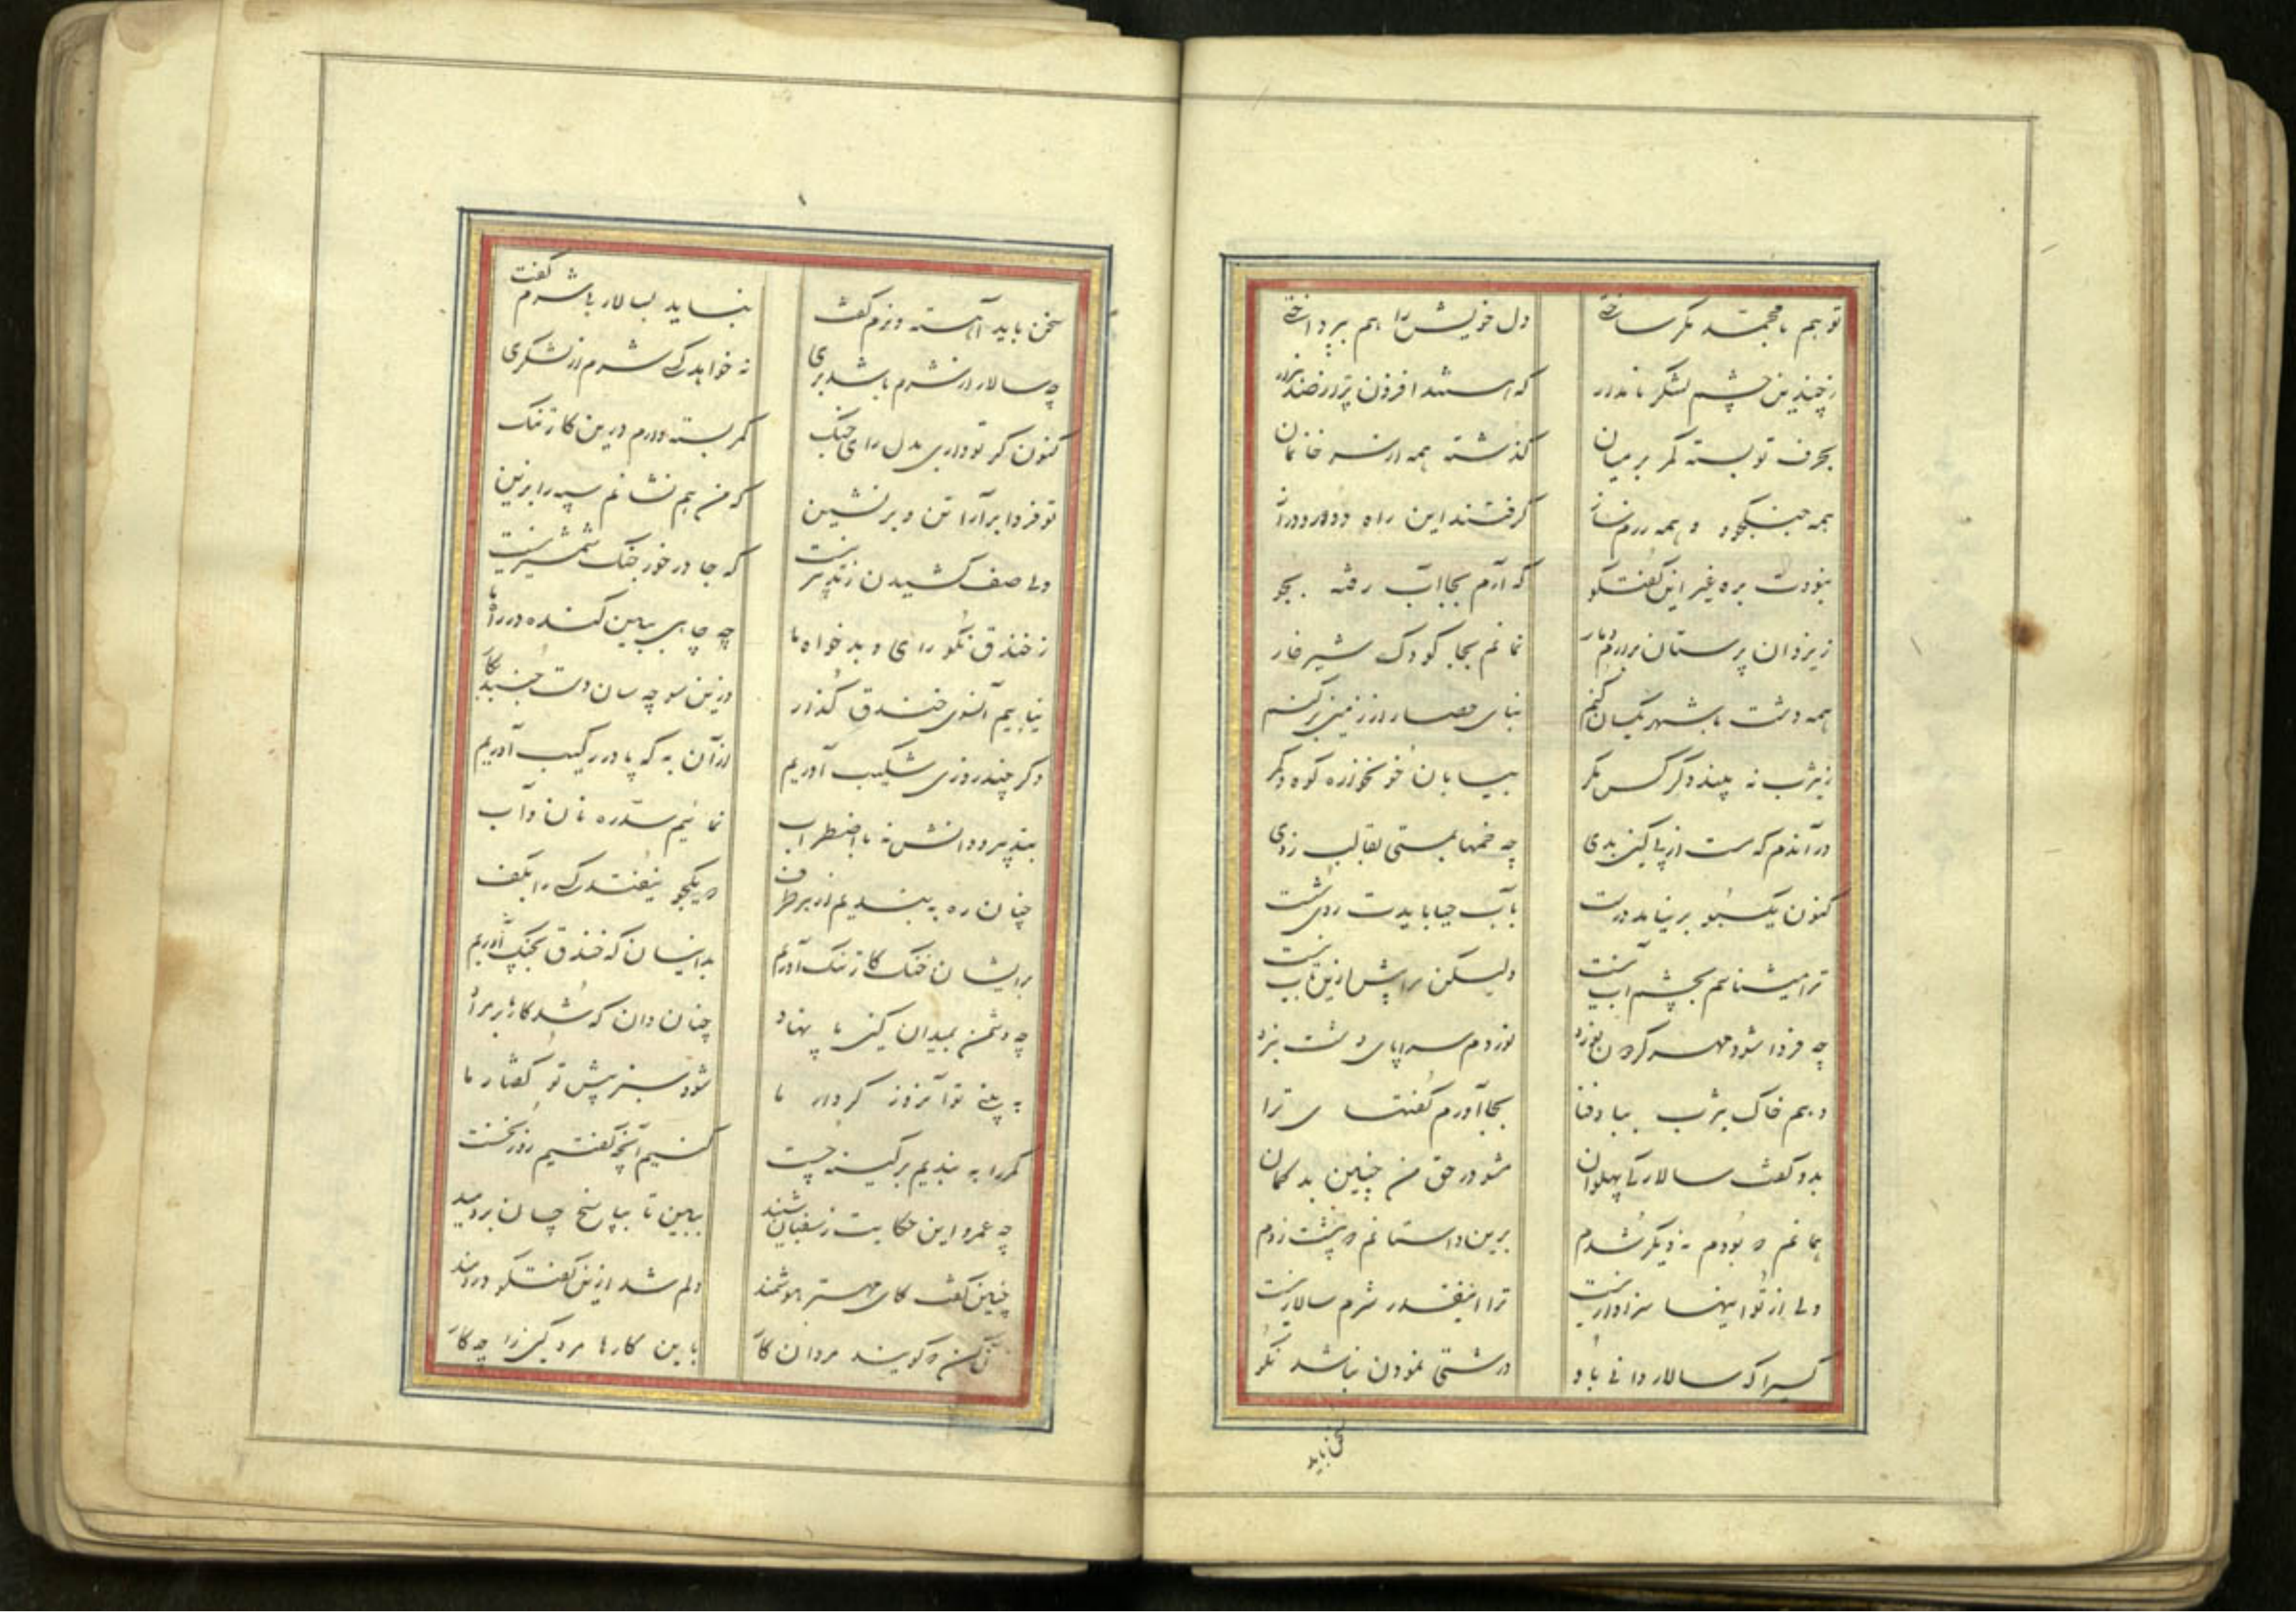 تو هم با محمد مگر ساختی دل خویش را هم بپرداختی
ز چندین چشم لشکر نامدار که هستند افزون تر از صد هزار
بحرف تو بسته کمر بر میان گذشته همه از سر خانمان
همه جنگجو و همه رزم ساز گرفتند این راه دور و دراز
نبودت بره غیر این گفتگو که آرم بجا آب رفته بجو
ز یزدان پرستان برارم دمار نمانم بجا کودک شیر خوار
همه دشت با شهر یکسان کنم بنای حصار از زمین برکنم
ز یثرب نه بیند دگر کس مگر بیابان خونخوار و کوه و کمر
در آندم که مست از می کین بدی چه خمها بمستی بقالب زدی
کنون یک سبو بر نیامد درست بآب حیا بایدت روی شست
ترا میشناسم بچشم آب نیست ولیکن مرا پیش ازین تاب نیست
چه فردا شود مهر گردون نورد نوردم سراپای دشت نبرد
دهم خاک یثرب بباد فنا بجا آورم گفتهای ترا
بدو گفت سالار کای پهلوان مشو در حق من چنین بد گمان
همانم که بودم نه دیگر شدم برین داستانم که پشت زدم
ولی از تو اینها سزاوار نیست ترا اینقدر شرم سالار نیست
کسیرا که سالار دانی باو درشتی نمودن نباشد نکو
سخن باید
سخن باید آهسته و نرم گفت نباید بسالار بی شرم گفت
چه سالار از شرم باشد بری نه خواهد کسی شرم از لشکری
کنون گر تو داری بدل رای جنگ کمر بسته دارم درین کار تنگ
تو فردا برآرا تن و بر نشین که من هم نشانم سپه را بزین
ولی صف کشیدن ز تدبیر نیست که جا در خور جنگ شمشیر نیست
ز خندق نگو رای و بد خواه ما چه چاهی ببین کنده در راه ما
نیابیم آنسوی خندق گذار وزین سو چه سان دست جنبد بکار
وگر چند روزی شکیب آوریم از آن به که پا در رکیب آوریم
بتدبیر و دانش نه با اضطراب نمائیم سد ره نان و آب
چنان ره به بندیم از هر طرف که یکجو نیفتد کسی را بکف
بر ایشان چنان کار تنگ آوریم بدانسان که خندق بجنگ آوریم
چه دشمن بمیدان کین پا نهاد چنان دان که شد کارها بر مراد
به بینی تو آنروز کردار ما شود سبز پیش تو گفتار ما
کمر را به بندیم بر کینه چست کنیم آنچه گفتیم روز نخست
چه عمرو این حکایت ز سفیان شنید ببین تا بپاسخ چسان بردمید
چنین گفت کای مهتر هوشمند دلم شد ازین گفتگو دردمند
کن که گویند مردان کار باین کارها مرد کین را چه کار